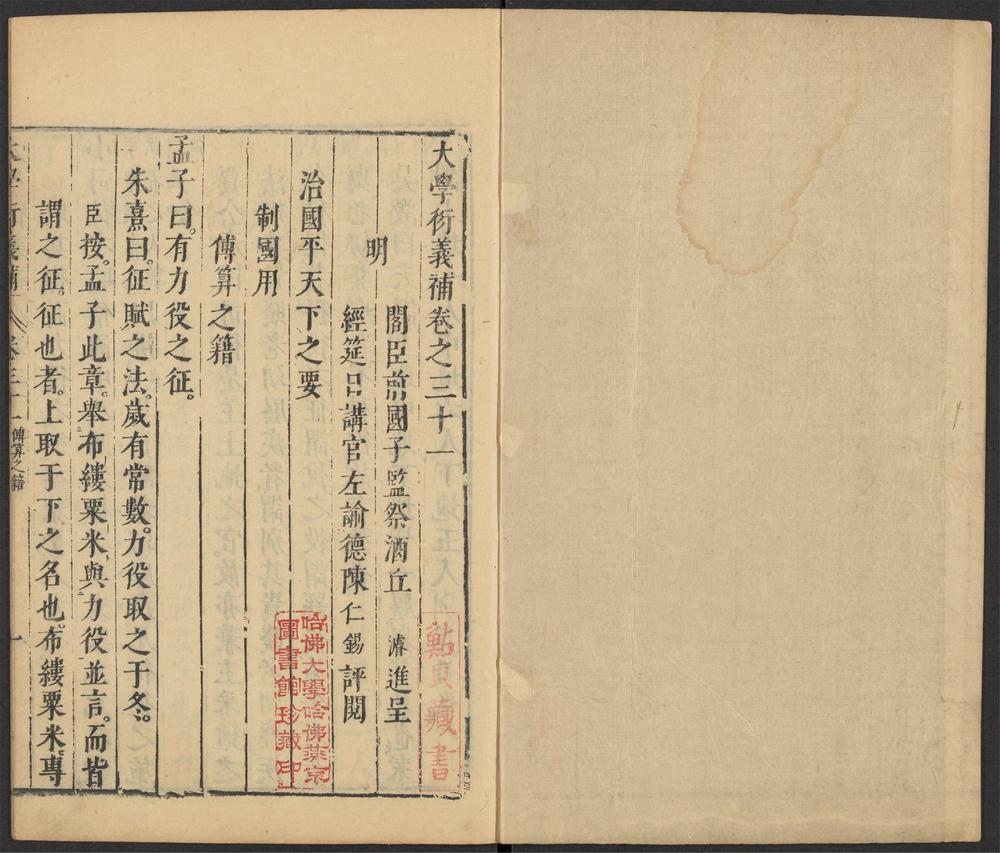 大學衍義補卷之三十一
明
閣臣前國子監祭酒丘濬進呈
經筵日講官左諭德陳仁錫評閱
治國平天下之要
制國用
傅算之籍
孟子曰。有力役之征。
朱熹曰。征賦之法。歲有常數。力役取之于冬。
臣按。孟子此章。舉布縷粟米。與力役並言。而皆
謂之征。征也者。上取于下之名也。布縷粟米。專
大學衍義補
卷三十一
傅算之籍
一
藏書
哈佛大學哈佛燕京
圖書館珍藏印